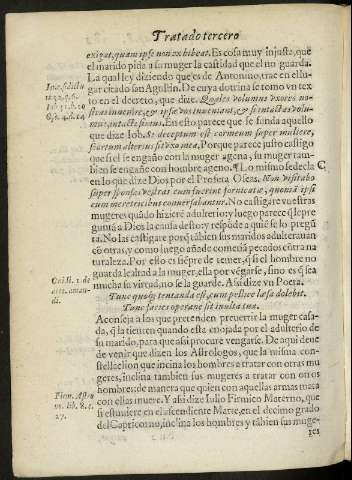 Tratado tercero
exigat, quam ipse non exhibeat. Es cosa muy injusta, que
el marido pida a su muger la castidad que el no guarda.
La qual ley diziendo que es de Antonino, trae en el lu-
gar citado san Agustin. De cuya dotrina se tomo vn tex
to en el decreto, que dize. Quales volumus vxores no-
stras inuenire, & ipsæ nos inueniant, & si intactas volu-
mus, intacti simus. En esto parece que se funda aquello
que dize Iob. Si deceptum est cor meum super muliere,
scortum alterius sit vxor mea. Porque parece justo castigo
que si el se engaño con la muger agena, su muger tam-
bien se engañe con hombre ageno. ¶ Lo mismo se decla
en lo que dize Dios por el Profeta Oseas. Non visitabo
super sponsas vestras cum fuerint fornicatæ, quoniã ipsi
cum meretricibus conuersabantur. No castigare vuestras
mugeres quãdo hizierẽ adulterio: y luego parece q̃ le pre
guntã a Dios la causa desto, y respõde a que se lo pregũ
ta. No las castigare porq̃ tãbien sus maridos adulterauan
cõ otras, y como luego añade cometiã pecados cõtra na
turaleza. Por esto es siẽpre de temer, q̃ si el hombre no
guarda lealtad a la muger, ella por vẽgarse, sino es q̃ sea
mucha su virtud, no se la guarde. Assi dize vn Poeta.
Tunc quoq; tentanda est, cum pellice læsa dolebit.
Tunc facies operane sit inulta tua.
Aconseja a los que pretenden peruertir la muger casa-
da, q̃ la tienten quando esta enojada por el adulterio de
su marido, para que assi procure vengarse. De aqui deue
de venir que dizen los Astrologos, que la misma con-
stellacion que incina los hombres a tratar con otras mu
geres, inclina tambien sus mugeres a tratar con otros
hombres: de manera que quien con aquellas armas mata
con ellas muere. Y assi dize Iulio Firmico Materno, que
si estuuiere en el ascendiente Marte, en el decimo grado
del Capricorno, inclina los hombres y tãbien sus muge-
res
Oui. li. 1. de
arte aman-
di.
Firm. Astro
no. lib. 8. c.
27.